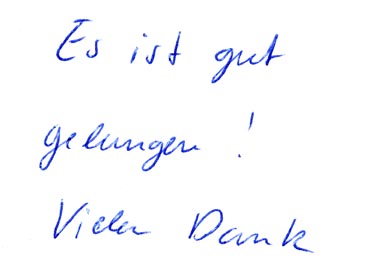 Es ist gut
gelungen!
Vielen Dank